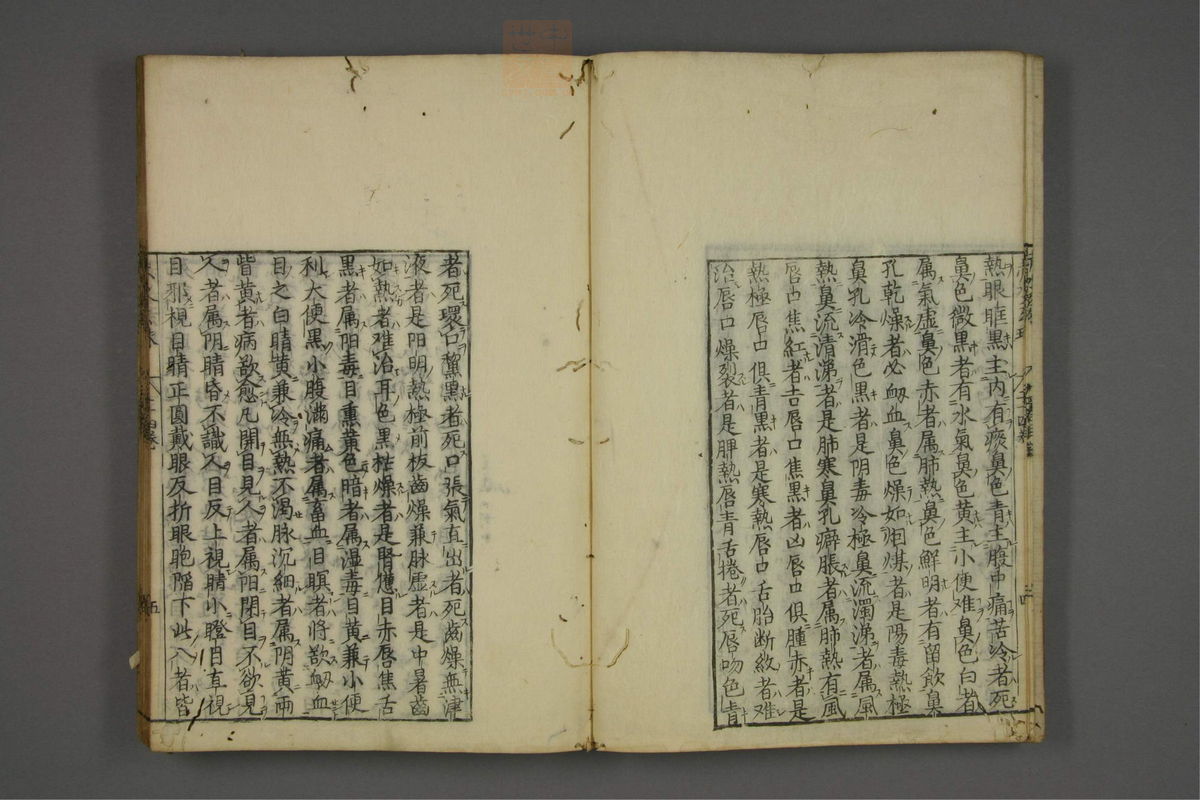 熱眼眶黒主内有痰鼻色青主腹中痛苦冷者死
鼻色微黒者有水氣鼻色黄主小便难鼻色白者
属氣虚鼻色赤者属肺熱鼻色鮮明者有留飲鼻
孔乾燥者必衂血鼻色燥如烟煤者是陽毒熱極
鼻孔冷滑色黒者是阴毒冷極鼻流濁涕者属風
熱鼻流清涕者是肺寒鼻孔癖脹者属肺熱有風
唇口焦紅者吉唇口焦黒者凶唇口俱腫赤者是
熱極唇口俱青黒者是寒熱唇口舌胎断紋者难
治唇口燥裂者是脾熱唇青舌捲者死唇吻色青
者死環口黧黒者死口張氣直出者死齒燥無津
液者是阳明熱極前板齒燥兼脉虚者是中暑齒
如熱者难治耳色黒枯燥者是腎憊目赤唇焦舌
黒者属阳毒目熏黄色暗者属湿毒目黄兼小便
利大便黒小腹满痛者属畜血目瞑者将欲衂血
目之白睛黄兼冷無熱不渴脉沉細者属阴黄兩
眥黄者病欲愈凡開目見人者属阳閉目不欲見
人者属阴睛昏不識人目反上視睛小瞪目直視
目邪視目睛正圓戴眼反折眼胞陷下此八者皆